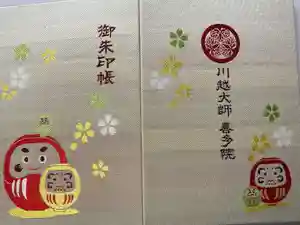 御朱印帳
川越大師 喜多院